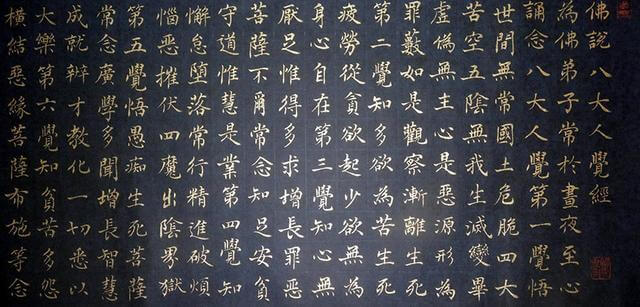 佛說八大人覺經
為佛弟子常於晝夜至心
誦念八大人覺第一覺悟
世間無常國土危脆四大
苦空五陰無我生滅變異
虛偽無主心是惡源形為
罪藪如是觀察漸離生死
第二覺知多欲為苦生死
疲勞從貪欲起少欲無為
身心自在第三覺知心無
厭足惟得多求增長罪惡
菩薩不爾常念知足安貧
守道惟慧是業第四覺知
懈怠墮落常行精進破煩
惱惡摧伏四魔出陰界獄
第五覺悟愚痴生死菩薩
常念廣學多聞增長智慧
成就辯才教化一切悉以
大樂第六覺知貧苦多怨
橫結惡緣菩薩布施等念